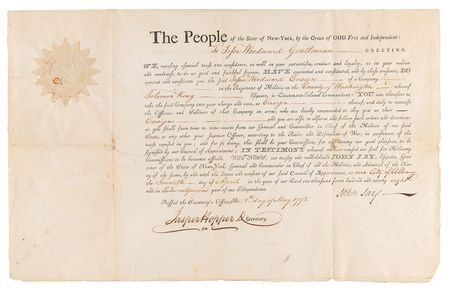 The People of the State of New-York, by the Grace of GOD Free and Independent:
To Jesse Woodward Gentleman GREETING.
WE, reposing especial trust and confidence, as well in your patriotism, conduct and loyalty, as in your valour
and readiness to do us good and faithful service, HAVE appointed and constituted, and by these presents, DO
appoint and constitute you the said Jesse Woodward Ensign of a Company
in the Regiment of Militia in the County of Washington whereof
Solomon King Esquire, is Lieutenant-Colonel Commandant: YOU are, therefore, to
take the said Company into your charge and care, as Ensign thereof, and duly to exercise
the Officers and Soldiers of that Company in arms, who are hereby commanded to obey you as their
Ensign and you are also to observe and follow such orders and directions
as you shall from time to time receive from our General and Commander in Chief of the Militia of our said
State, or any other your Superior Officer, according to the Rules and Discipline of War, in pursuance of the
trust reposed in you; and for so doing, this shall be your Commission, for and during our good pleasure, to be
signified by our Council of Appointment: IN TESTIMONY whereof We have caused our Seal for Military
Commissions to be hereunto affixed: WITNESS, our trusty and well-beloved JOHN JAY, Esquire, Governor
of our State of New-York, General and Commander in Chief of all the Militia, and Admiral of the Navy
of the same, by and with the advice and consent of our said Council of Appointment, at our City of Albany
the Seventh day of April in the Year of our Lord one thousand seven hundred and ninety eight
and in the twenty second year of our Independence.
John Jay
Passed the Secretary's Office, the day of May 1798
Jasper Hopper D Secretary.